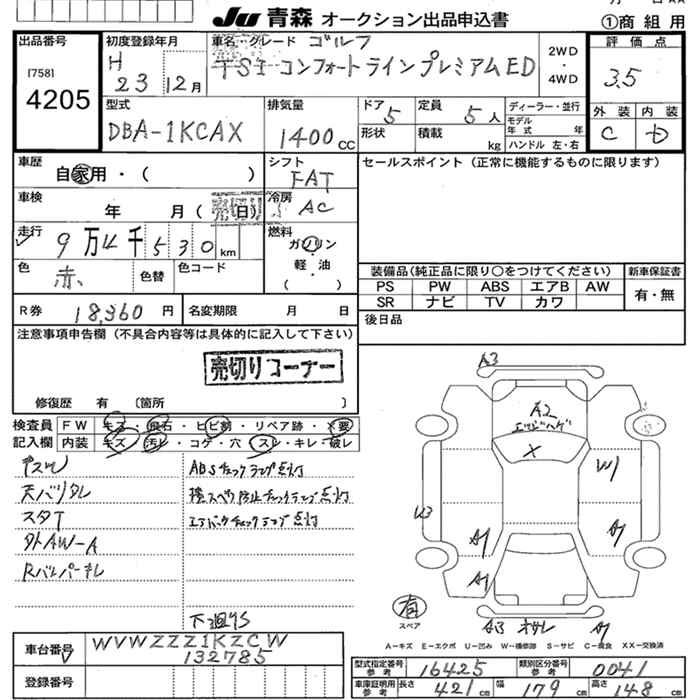 JU 青森 オークション出品申込書
①商組用
出品番号
[758]
4205
初度登録年月
H
23 12 月
車名・グレード ゴルフ
TSI コンフォートラインプレミアムED
2WD
・
4WD
評価点
3.5
外装 内装
C D
型式
DBA-1KCAX
排気量
1400 cc
ドア 5
形状
定員 5 人
積載 kg
ディーラー・並行
モデル
年式 年
ハンドル 左・右
車歴
自家用・( )
シフト
FAT
セールスポイント(正常に機能するものに限ります)
車検
年 月( 売切り 日)
冷房
AC
走行
9 万 4 千 5 3 0 km
燃料
ガソリン
・
軽・油
( )
色
赤
色替
色コード
装備品(純正品に限り○をつけてください)
PS PW ABS エアB AW
SR ナビ TV カワ
新車保証書
有・無
R券 18,360 円
名変期限 月 日
後日品
注意事項申告欄(不具合内容等は具体的に記入して下さい)
売切りコーナー
修復歴 有 (箇所 )
検査員
記入欄
FW キズ・飛石・ヒビ割・リペア跡・×要
内装 キズ・汚レ・コゲ・穴・スレ・キレ・破レ
天バリタレ
スタT
外AW-A
Rバンパーキレ
ABSチェックランプ点灯
横スベリ防止チェックランプ点灯
エアバックチェックランプ点灯
下廻りS
A3
A2
X
W1
U3
A1
A1
A1
有
スペア
A3
A1
A-キズ E-エクボ U-凹み W-補修跡 S-サビ C-腐食 XX-交換済
車台番号
WVWZZZ1KZCW
132785
登録番号
型式指定番号
参考
16425
類別区分番号
参考
0041
車庫証明用
参考
長さ 421 cm
幅 179 cm
高さ 148 cm